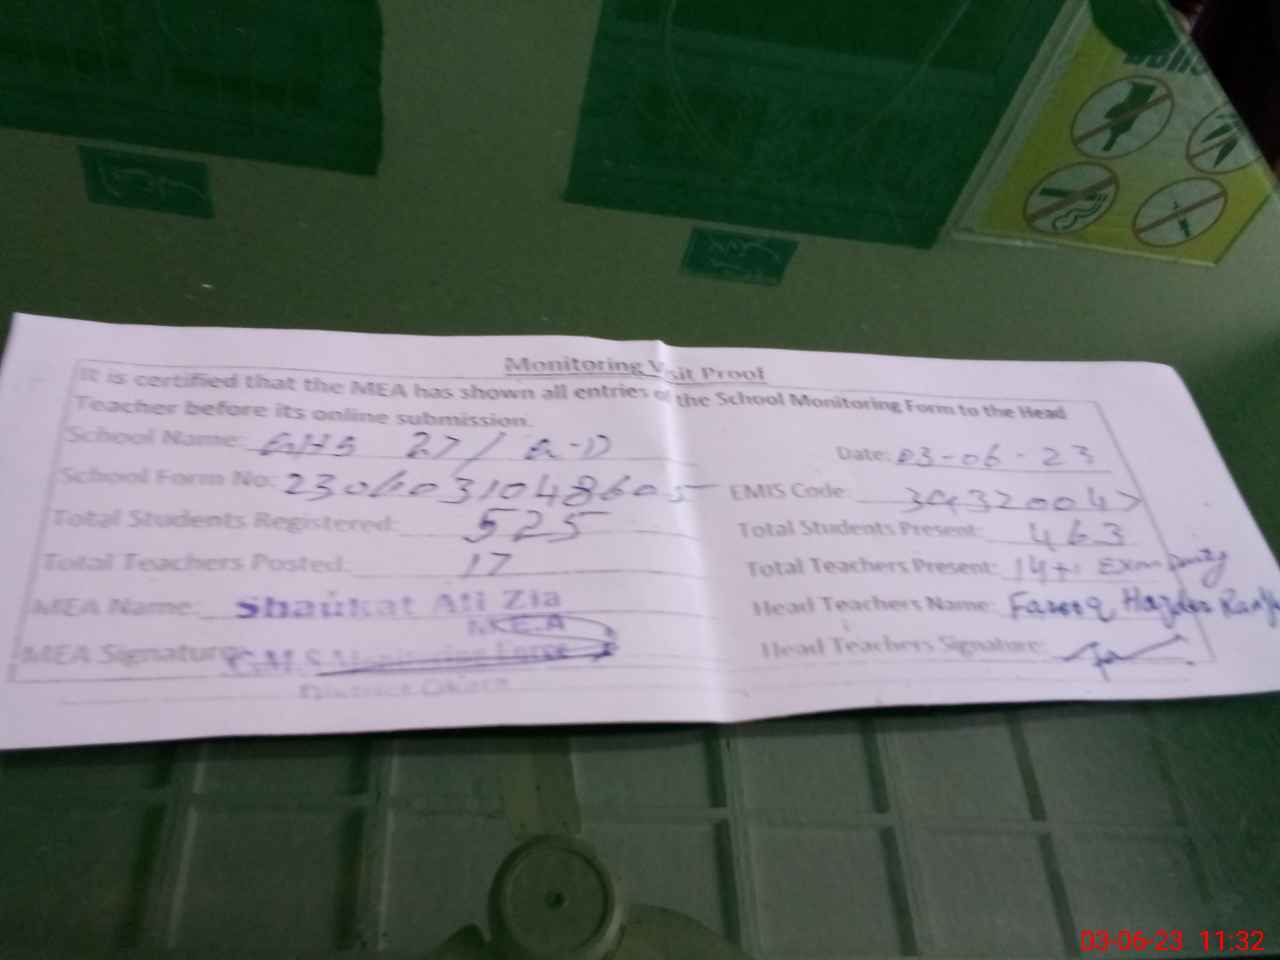 Monitoring Visit Proof
It is certified that the MEA has shown all entries of the School Monitoring Form to the Head
Teacher before its online submission.
School Name: GHS 27/ G-D Date: 03-06-23
School Form No: 2306031048605 EMIS Code: 39432004
Total Students Registered: 525 Total Students Present: 463
Total Teachers Posted: 17 Total Teachers Present: 14+1 Exam Duty
MEA Name: Shaukat Ali Zia Head Teachers Name: Farooq Hayder
M.E.A
MEA Signature: C.M.S Monitoring Force Head Teachers Signature:
District Okara
03-06-23 11:32